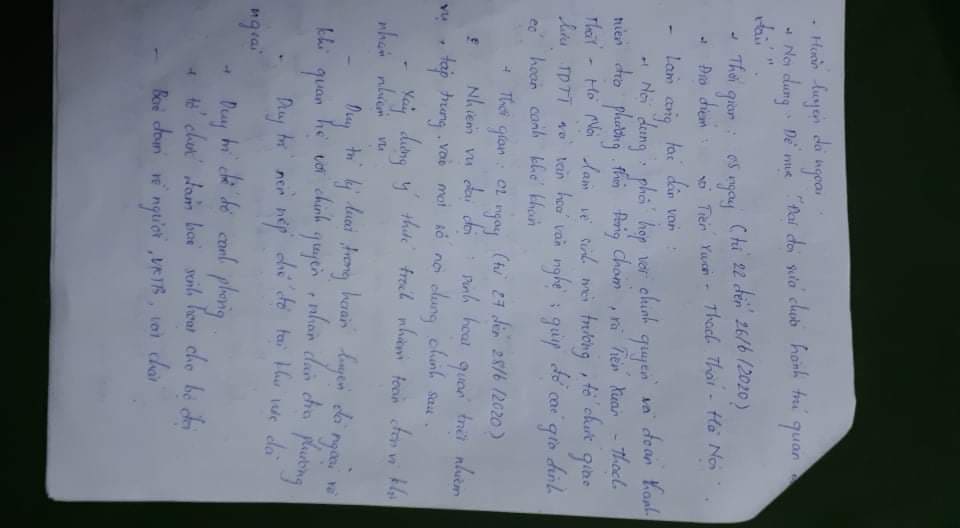 - Huấn luyện dã ngoại
+ Nội dung: Đề mục "Đại đội sửa chữa hành trú quân
dã".
+ Thời gian: 05 ngày (từ 22 đến 26/6/2020)
+ Địa điểm: xã Tiến Xuân - Thạch Thất - Hà Nội.
- Làm công tác dân vận:
+ Nội dung: phối hợp với chính quyền và đoàn thanh
niên địa phương thôn Đồng Chằm, xã Tiến Xuân - Thạch
Thất - Hà Nội làm vệ sinh môi trường, tổ chức giao
lưu TDTT và văn hoá văn nghệ; giúp đỡ các gia đình
có hoàn cảnh khó khăn
+ Thời gian: 02 ngày (từ 27 đến 28/6/2020)
Nhiệm vụ đại đội: sinh hoạt quán triệt nhiệm
vụ, tập trung vào một số nội dung chính sau.
- Xây dựng ý thức trách nhiệm toàn đơn vị khi
nhận nhiệm vụ
- Duy trì kỷ luật trong huấn luyện dã ngoại và
khi quan hệ với chính quyền, nhân dân địa phương
- Duy trì nền nếp chế độ tại khu vực dã
ngoại
+ Duy trì chế độ canh phòng
+ tổ chức đảm bảo sinh hoạt cho bộ đội
- Bảo đảm về người, VKTB, vật chất